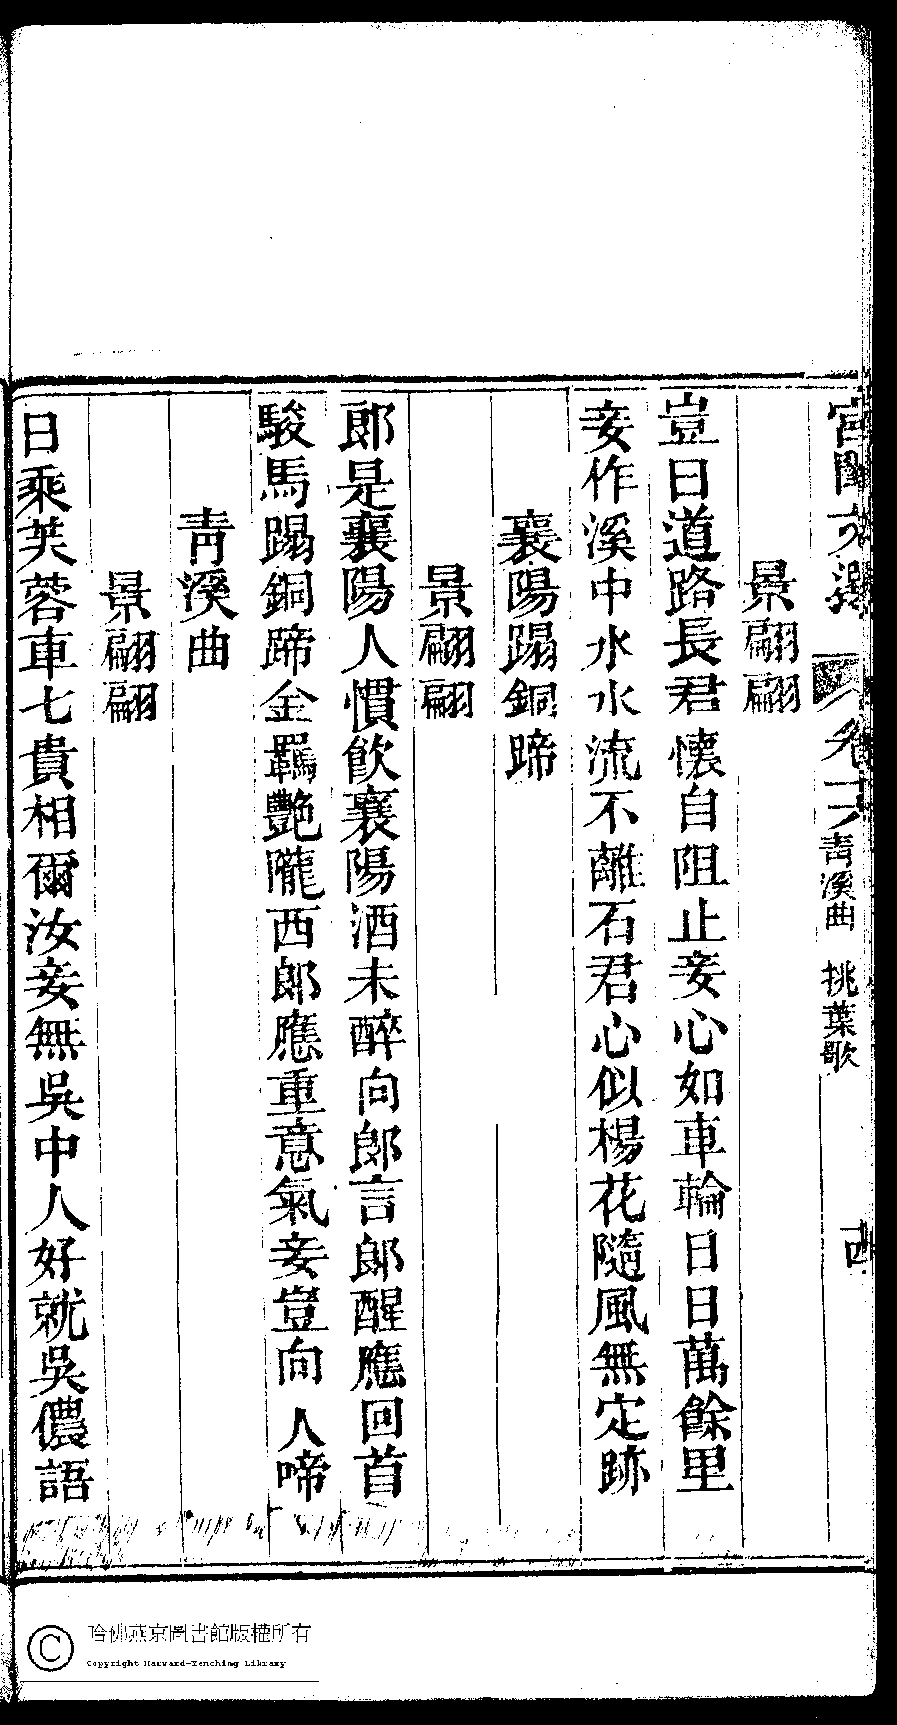 宮閨文選 卷十六 青溪曲 挑葉歌 十四
景翩翩
豈曰道路長君懷自阻止妾心如車輪日日萬餘里
妾作溪中水水流不離石君心似楊花隨風無定跡
襄陽蹋銅蹄
景翩翩
郎是襄陽人慣飲襄陽酒未醉向郎言郎醒應回首
駿馬蹋銅蹄金羈艷隴西郎應重意氣妾豈向人啼
青溪曲
景翩翩
日乘芙蓉車七貴相爾汝妾無吳中人好就吳儂語
哈佛燕京圖書館版權所有
Copyright Harvard-Yenching Library